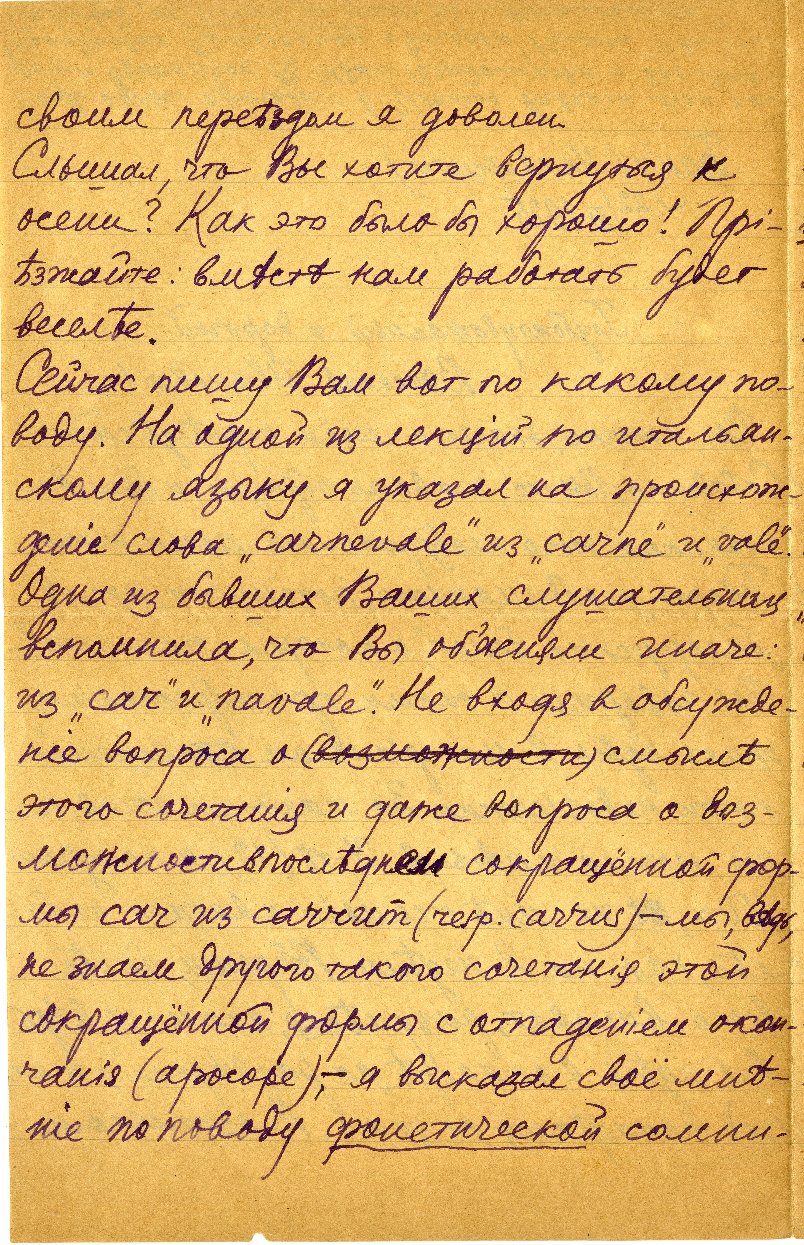 своим переѣздом я доволен.
Слышал, что Вы хотите вернуться к
осени? Как это было бы хорошо! Прі-
ѣзжайте: вмѣстѣ нам работать будет
веселѣе.
Сейчас пишу Вам вот по какому по-
воду. На одной из лекцій по итальян-
скому языку я указал на происхож-
деніе слова „carnevale“ из „carne“ и „vale“.
Одна из бывших Ваших слушательниц
вспомнила, что Вы объясняли иначе:
из „car“ и „navale“. Не входя в обсужде-
ніе вопроса о (возможности) смыслѣ
этого сочетанія и даже вопроса о воз-
можности впослѣднем сокращённой фор-
мы car из carrum (чегр. carrus) – мы, вѣдь,
не знаем другого такого сочетанія этой
сокращённой формы с отпаденіем окон-
чанія (apocope); – я высказал своё мнѣ-
ніе по поводу фонетической сомни-